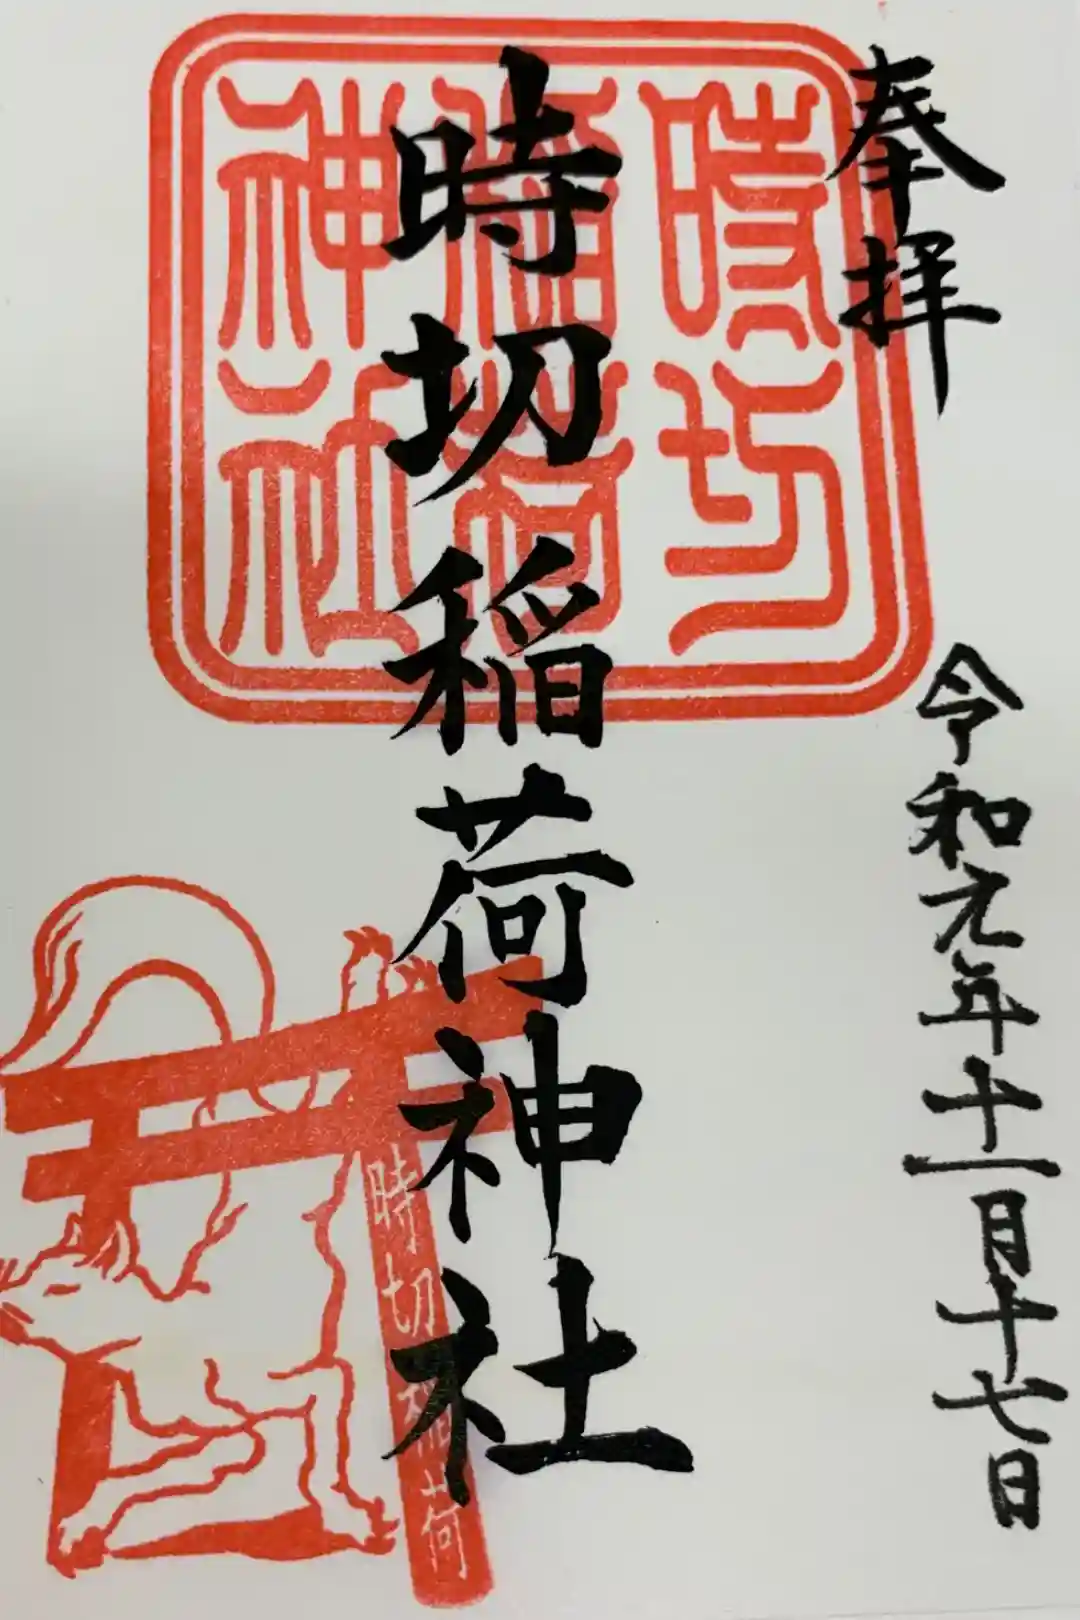 奉拝
令和元年十一月十七日
時切稲荷神社
時切
稲荷
神社
時切稲荷